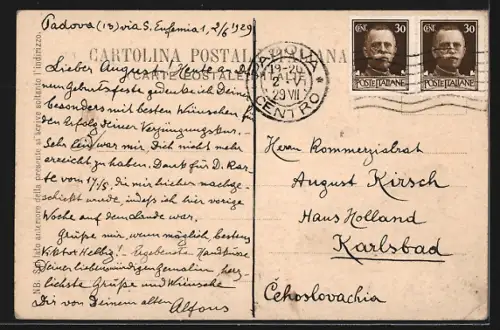 Padova (13) via S. Eufemia 1, 2/6 1929
CARTOLINA POSTALE ITALIANA
(CARTE POSTALE D'ITALIE)
NB. Sul lato anteriore della presente si scrive soltanto l'indirizzo.
Lieber August! Heute a. d.
nem Geburtsfeste gedenke ich Deiner
besonders mit besten Wünschen,
den Erfolg Deiner Verjüngungskur.
Sehr leid war mir, Dich nicht mehr
erreicht zu haben. Dank für D. Kar-
te vom 17/5, die mir hierher nachge-
schickt wurde, indeß ich hier vorige
Woche auf dem Lande war.
Grüße mir, wenn möglich, bestens
Viktor Helbig! Ergebenste Handküsse
Deiner liebenswürdigen Gemalin, herz-
lichste Grüße und Wünsche
Dir von Deinem alten
Alfons
PADOVA
19-20
2 VI
29 VII
CENTRO
CENT. 30
POSTE ITALIANE
CENT. 30
POSTE ITALIANE
Herrn Kommerzialrat
August Kirsch
Haus Holland
Karlsbad
Čehoslovachia